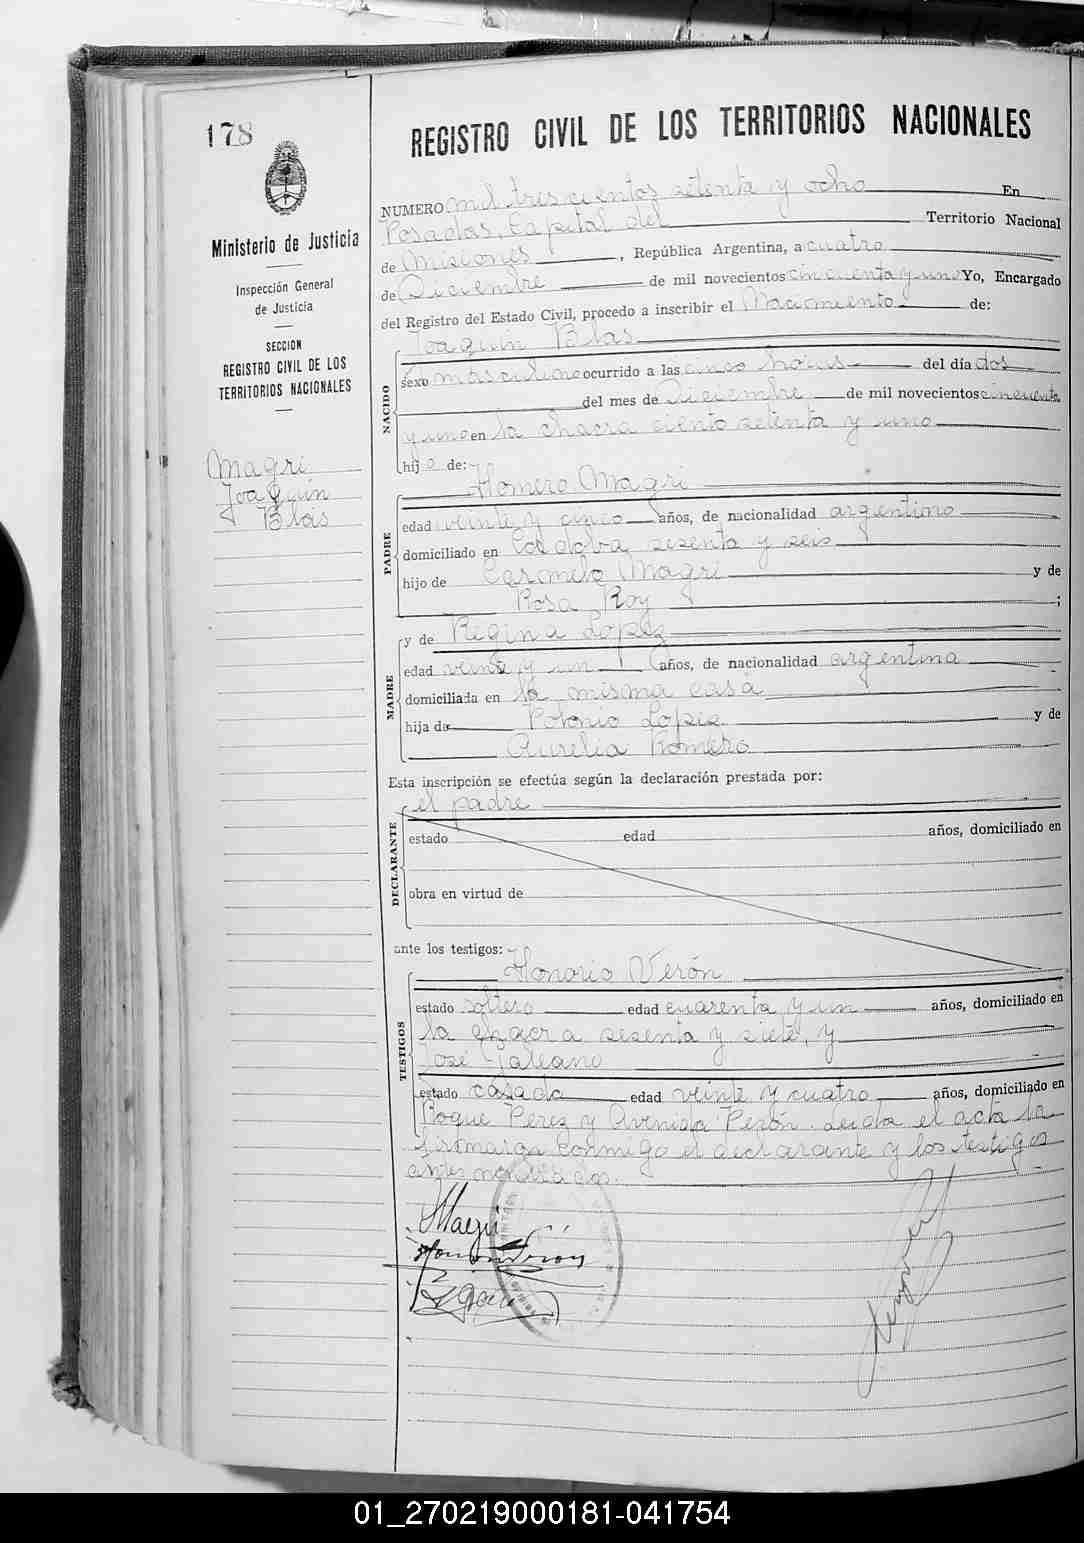 178
Ministerio de Justicia
Inspección General
de Justicia
SECCION
REGISTRO CIVIL DE LOS
TERRITORIOS NACIONALES
Magri
Joaquin
Blas
REGISTRO CIVIL DE LOS TERRITORIOS NACIONALES
NUMERO mil trescientos setenta y ocho En
Posadas, Capital del Territorio Nacional
de Misiones, República Argentina, a cuatro
de Diciembre de mil novecientos cincuenta y uno Yo, Encargado
del Registro del Estado Civil, procedo a inscribir el Nacimiento de:
NACIDO
Joaquin Blas
sexo masculino ocurrido a las cinco horas del día dos
del mes de Diciembre de mil novecientos cincuenta
y uno en la chacra ciento setenta y uno
hijo de:
PADRE
Homero Magri
edad veinte y cinco años, de nacionalidad argentino
domiciliado en Cordoba sesenta y seis
hijo de Carmelo Magri y de
Rosa Roy ;
MADRE
y de Regina Lopez
edad veinte y un años, de nacionalidad argentina
domiciliada en la misma casa
hija de Polonio Lopez y de
Aurelia Romero
Esta inscripción se efectúa según la declaración prestada por:
DECLARANTE
el padre
estado edad años, domiciliado en
obra en virtud de
ante los testigos:
TESTIGOS
Honorio Verón
estado soltero edad cuarenta y un años, domiciliado en
la chacra sesenta y siete, y
José Galeano
estado casado edad veinte y cuatro años, domiciliado en
Roque Perez y Avenida Perón. Leida el acta la
firmaron conmigo el declarante y los testigos
antes nombrados.
Magri
01_270219000181-041754